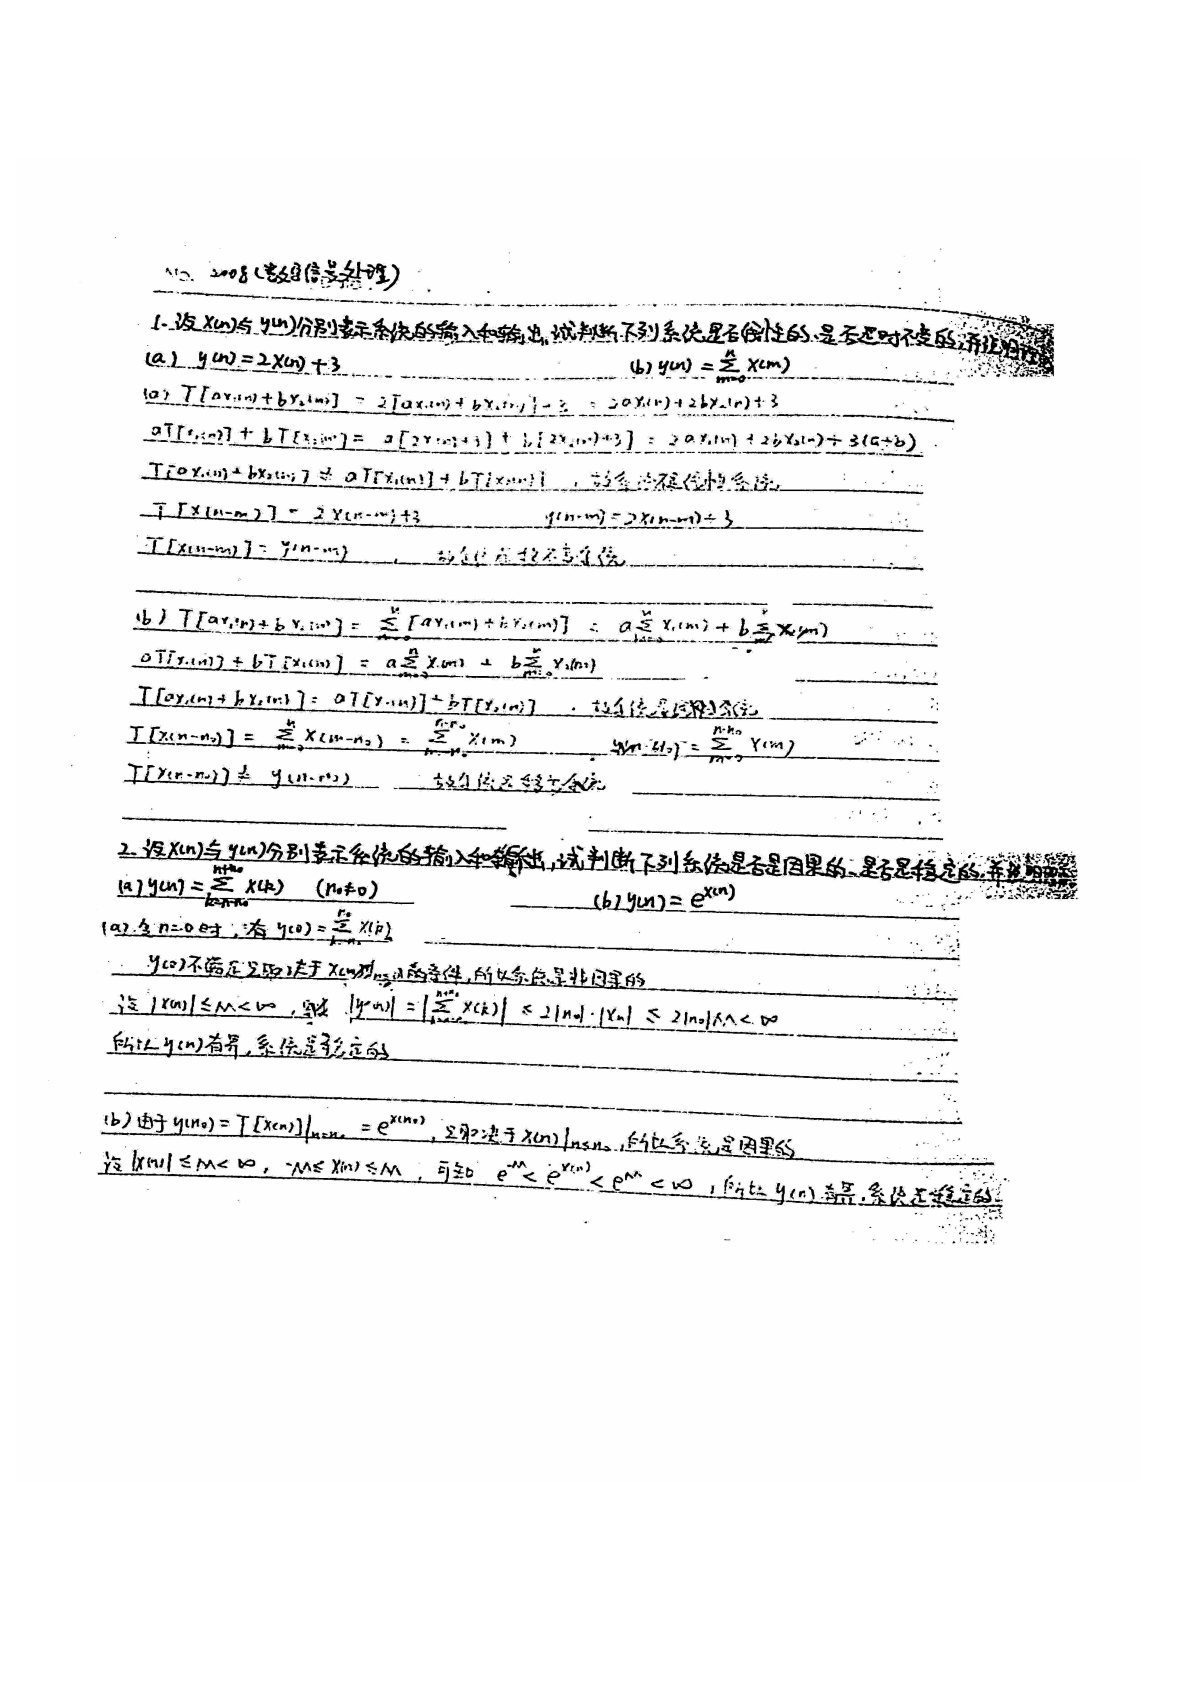 No. 2008(数字信号处理)
1. 设X(n)与y(n)分别表示系统的输入和输出,试判断下列系统是否线性的、是否是时不变的,并
(a) y(n)=2X(n)+3 (b) y(n)=∑_{m=0}^{n} X(m)
(a) T[ax₁(n)+bx₂(n)] = 2[ax₁(n)+bx₂(n)]+3 = 2ax₁(n)+2bx₂(n)+3
aT[x₁(n)]+bT[x₂(n)] = a[2x₁(n)+3]+b[2x₂(n)+3] = 2ax₁(n)+2bx₂(n)+3(a+b).
T[ax₁(n)+bx₂(n)] ≠ aT[x₁(n)]+bT[x₂(n)], 故系统线性系统
T[x(n-m)] = 2x(n-m)+3 y(n-m)=2x(n-m)+3
T[x(n-m)] = y(n-m), 故系统移不变系统
(b) T[ax₁(n)+bx₂(n)] = ∑_{m=0}^{n}[ax₁(m)+bx₂(m)] = a∑x₁(m)+b∑x₂(m)
aT[x₁(n)]+bT[x₂(n)] = a∑_{m=0}^{n}x₁(m)+b∑_{m=0}^{n}x₂(m)
T[ax₁(n)+bx₂(n)] = aT[x₁(n)]+bT[x₂(n)]. 故系统是线性系统
T[x(n-n₀)] = ∑_{m=0}^{n}X(m-n₀) = ∑_{m=-n₀}^{n-n₀}X(m) y(n-n₀)=∑_{m=0}^{n-n₀}X(m)
T[x(n-n₀)] ≠ y(n-n₀) 故系统是移变系统
2. 设X(n)与y(n)分别表示系统的输入和输出,试判断下列系统是否是因果的、是否是稳定的,并说明
(a) y(n)=∑_{k=n-n₀}^{n+n₀}X(k) (n₀≠0) (b) y(n)=e^{X(n)}
(a).令n=0时,有 y(0)=∑X(k)
y(0)不满足只取决于X(n)的条件,所以系统是非因果的
设 |X(n)|≤M<∞, |y(n)|=|∑X(k)| ≤ 2|n₀|·|Xn| ≤ 2|n₀|M<∞
所以y(n)有界,系统是稳定的
(b)由于y(n₀)=T[X(n)]|_{n=n₀}=e^{X(n₀)},只取决于X(n)|_{n≤n₀},所以系统是因果的
设|X(n)|≤M<∞, -M≤X(n)≤M, 可知 e^{-M}<e^{X(n)}<e^{M}<∞,所以y(n)有界,系统是稳定的.